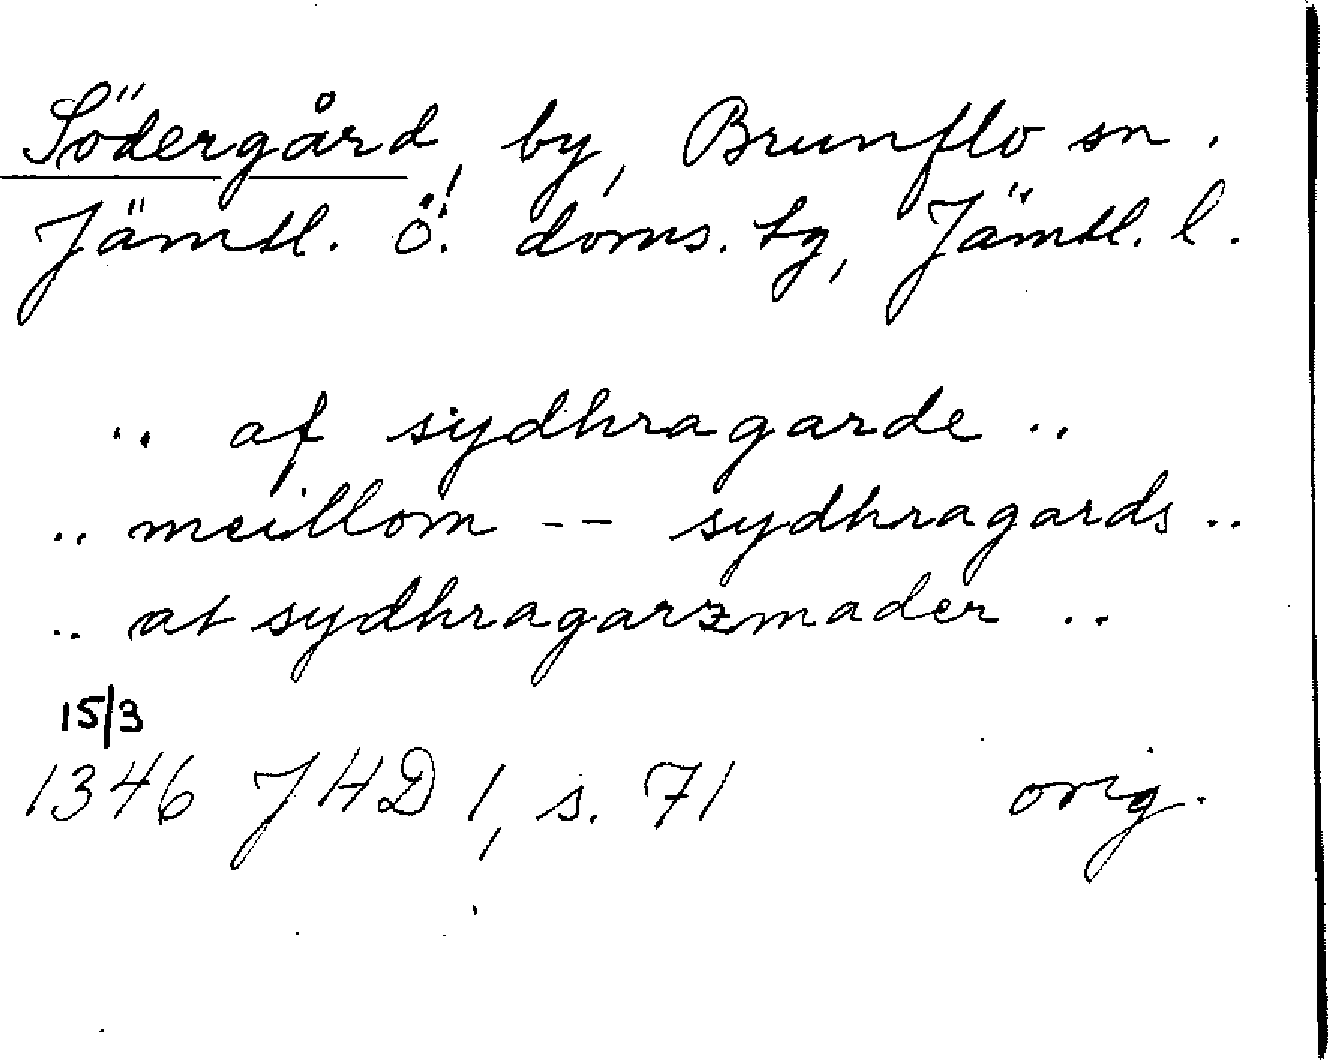 Södergård, by, Brunflo sn.
Jämtl. ö. doms. tg, Jämtl. l.
.. af sydhragarde ..
.. meillom -- sydhragards ..
.. at sydhragarzmader ..
15/3
1346 JHD 1, s. 71 orig.